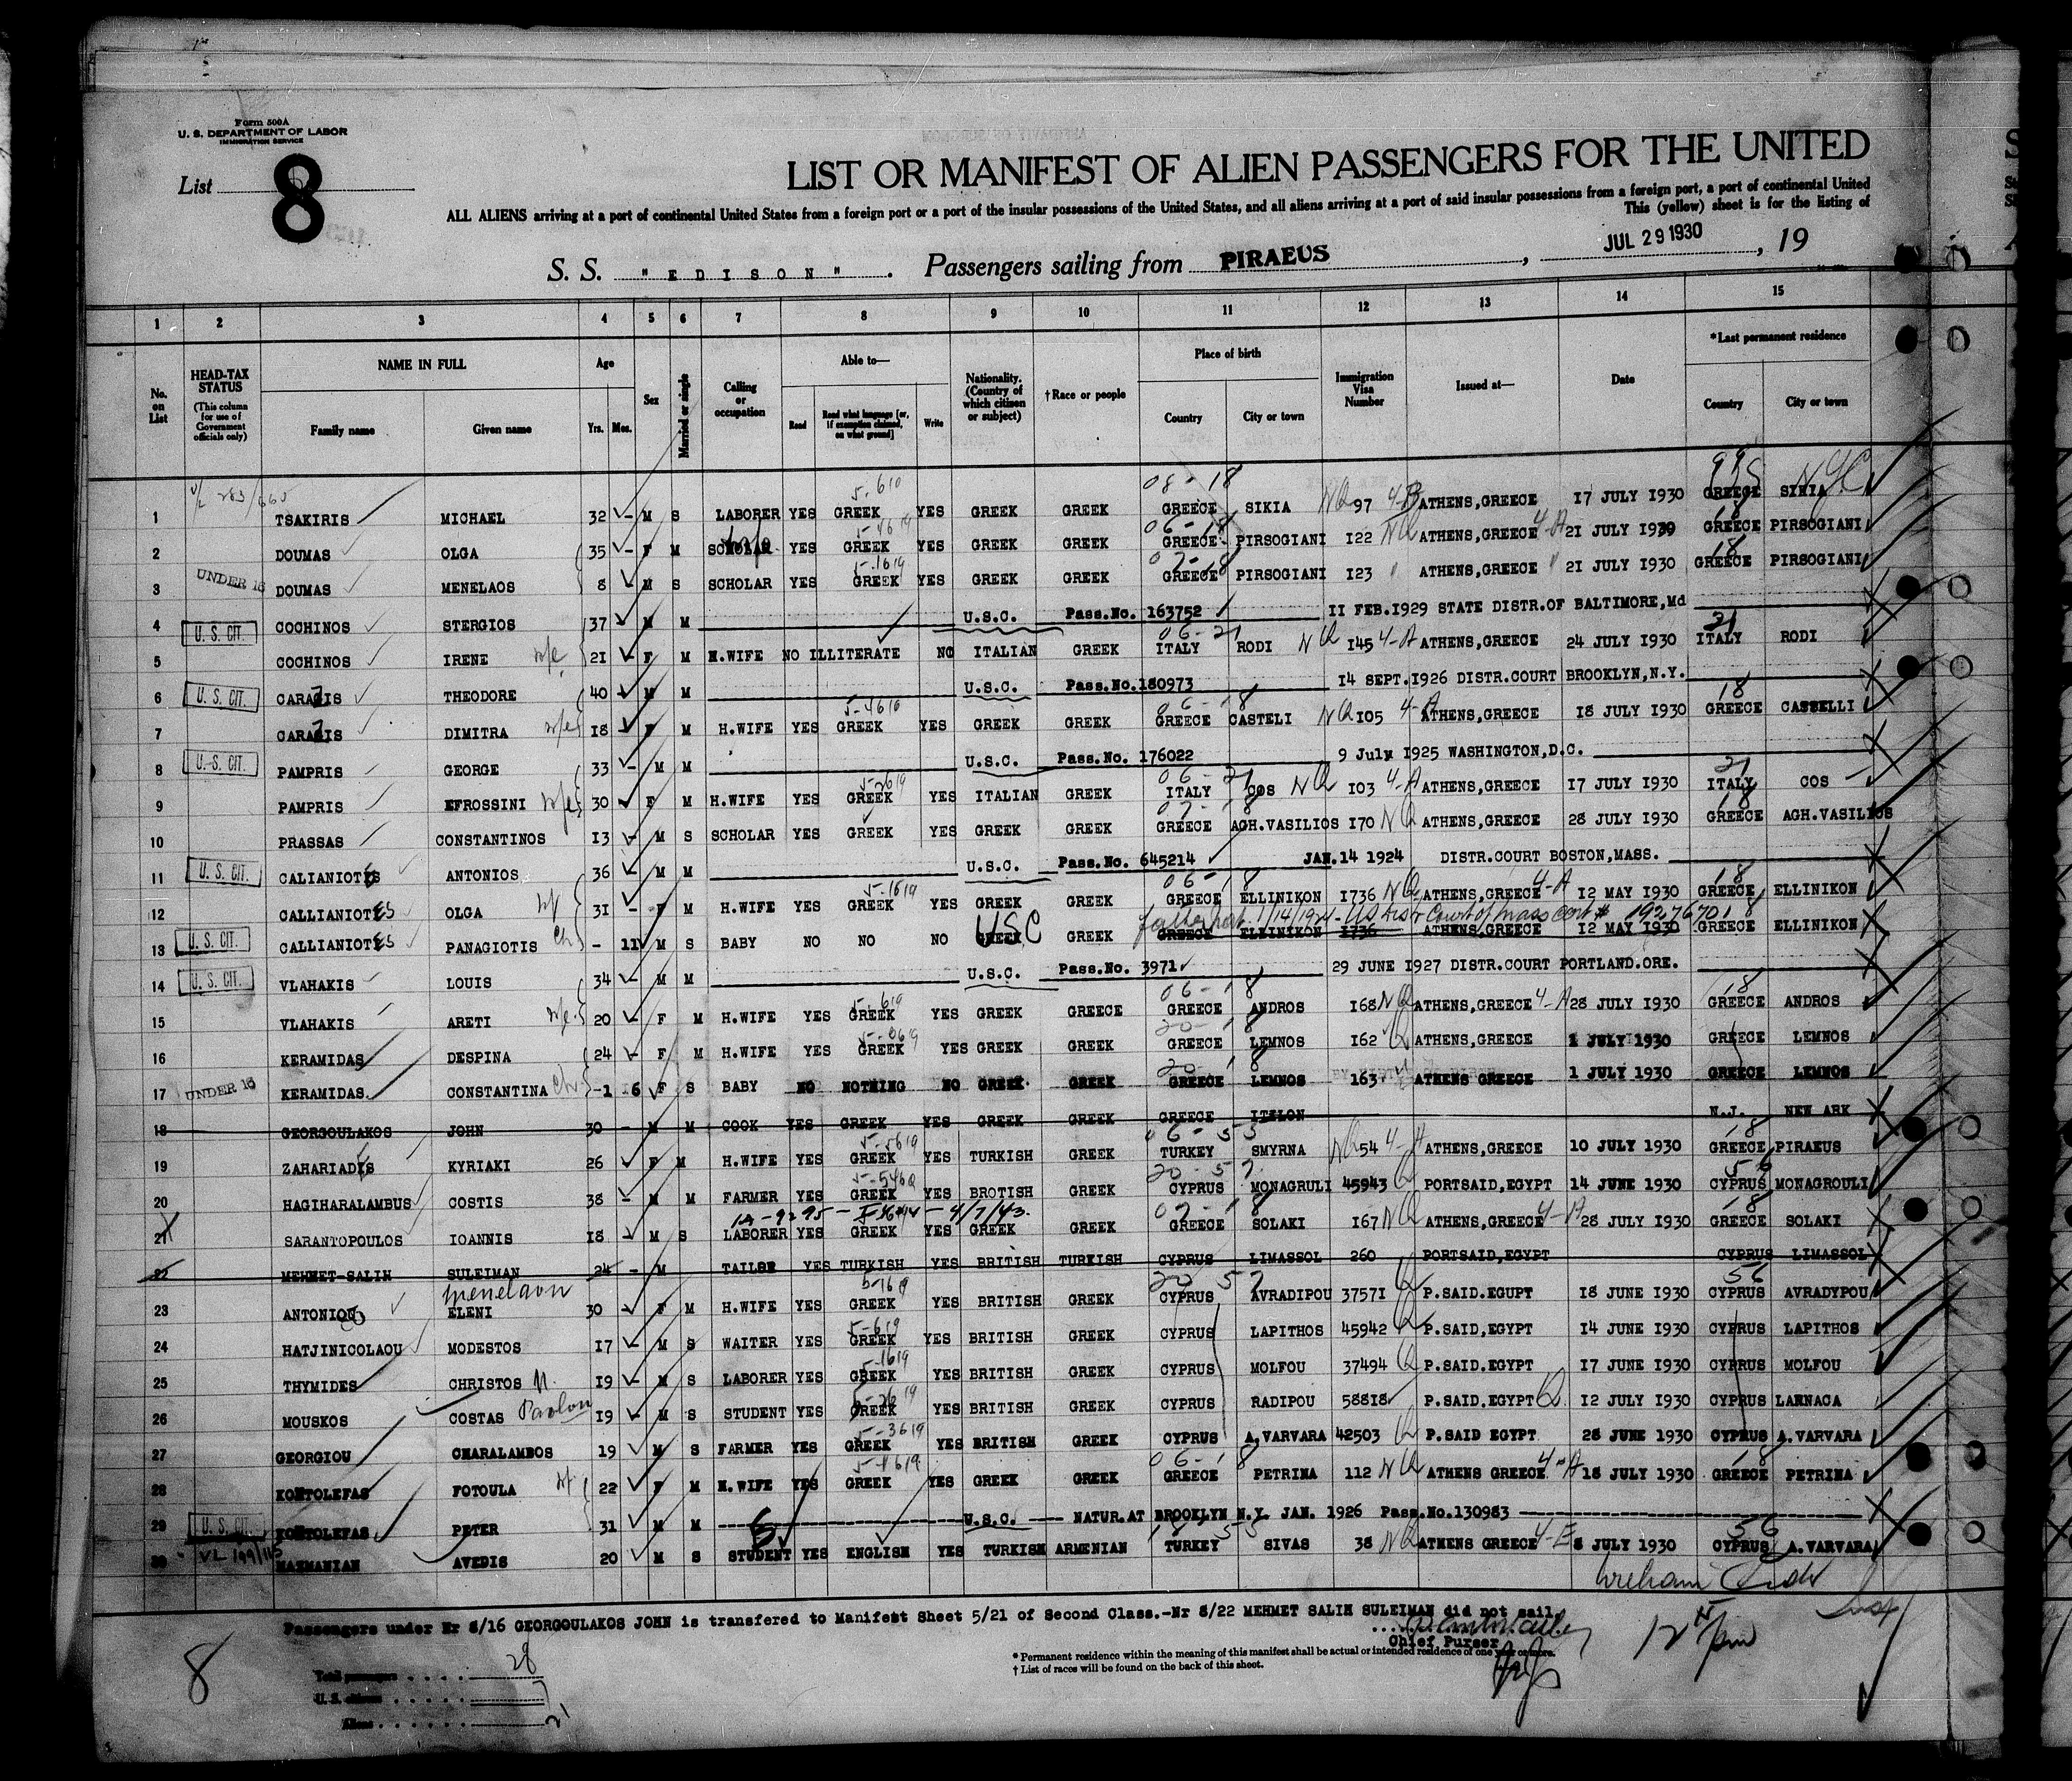 Form 500A
U. S. DEPARTMENT OF LABOR
IMMIGRATION SERVICE
List 8
LIST OR MANIFEST OF ALIEN PASSENGERS FOR THE UNITED
ALL ALIENS arriving at a port of continental United States from a foreign port or a port of the insular possessions of the United States, and all aliens arriving at a port of said insular possessions from a foreign port, a port of continental United
This (yellow) sheet is for the listing of
S. S. "EDISON" . Passengers sailing from PIRAEUS , JUL 29 1930 , 19
1 2 3 4 5 6 7 8 9 10 11 12 13 14 15
No. on List
HEAD-TAX STATUS
(This column for use of Government officials only)
NAME IN FULL
Family name Given name
Age
Yrs. Mos.
Sex
Married or single
Calling or occupation
Able to—
Read Read what language [or, if exemption claimed, on what ground] Write
Nationality. (Country of which citizen or subject)
† Race or people
Place of birth
Country City or town
Immigration Visa Number
Issued at—
Date
* Last permanent residence
Country City or town
1 TSAKIRIS MICHAEL 32 - M S LABORER YES GREEK YES GREEK GREEK GREECE SIKIA 97 ATHENS,GREECE 17 JULY 1930 GREECE SIKIA
2 DOUMAS OLGA 35 - F M SCHOLAR YES GREEK YES GREEK GREEK GREECE PIRSOGIANI 122 ATHENS,GREECE 21 JULY 1930 GREECE PIRSOGIANI
3 UNDER 16 DOUMAS MENELAOS 8 - M S SCHOLAR YES GREEK YES GREEK GREEK GREECE PIRSOGIANI 123 ATHENS,GREECE 21 JULY 1930 GREECE PIRSOGIANI
4 U. S. CIT. COCHINOS STERGIOS 37 M M U.S.C. Pass.No. 163752 11 FEB.1929 STATE DISTR.OF BALTIMORE,Md
5 COCHINOS IRENE 21 - F M H.WIFE NO ILLITERATE NO ITALIAN GREEK ITALY RODI 145 ATHENS,GREECE 24 JULY 1930 ITALY RODI
6 U. S. CIT. CARAZIS THEODORE 40 - M M U.S.C. Pass.No.180973 14 SEPT.1926 DISTR.COURT BROOKLYN,N.Y.
7 CARAZIS DIMITRA 18 - F M H.WIFE YES GREEK YES GREEK GREEK GREECE CASTELI 105 ATHENS,GREECE 18 JULY 1930 GREECE CASTELLI
8 U. S. CIT. PAMPRIS GEORGE 33 - M M U.S.C. Pass.No. 176022 9 July 1925 WASHINGTON,D.C.
9 PAMPRIS EFROSSINI 30 F M H.WIFE YES GREEK YES ITALIAN GREEK ITALY COS 103 ATHENS,GREECE 17 JULY 1930 ITALY COS
10 PRASSAS CONSTANTINOS 13 - M S SCHOLAR YES GREEK YES GREEK GREEK GREECE AGH.VASILIOS 170 ATHENS,GREECE 28 JULY 1930 GREECE AGH.VASILIOS
11 U. S. CIT. CALIANIOTES ANTONIOS 36 - M M U.S.C. Pass.No. 645214 JAN.14 1924 DISTR.COURT BOSTON,MASS.
12 CALLIANIOTES OLGA 31 - F M H.WIFE YES GREEK YES GREEK GREEK GREECE ELLINIKON 1736 ATHENS,GREECE 12 MAY 1930 GREECE ELLINIKON
13 U. S. CIT. CALLIANIOTES PANAGIOTIS - 11 M S BABY NO NO NO GREEK USC GREEK GREECE ELLINIKON 1736 ATHENS,GREECE 12 MAY 1930 GREECE ELLINIKON
14 U. S. CIT. VLAHAKIS LOUIS 34 - M M U.S.C. Pass.No. 3971 29 JUNE 1927 DISTR.COURT PORTLAND.ORE.
15 VLAHAKIS ARETI 20 - F M H.WIFE YES GREEK YES GREEK GREECE GREECE ANDROS 168 ATHENS,GREECE 28 JULY 1930 GREECE ANDROS
16 KERAMIDAS DESPINA 24 - F M H.WIFE YES GREEK YES GREEK GREEK GREECE LEMNOS 162 ATHENS,GREECE 1 JULY 1930 GREECE LEMNOS
17 UNDER 16 KERAMIDAS CONSTANTINA -1 6 F S BABY NO NOTHING NO GREEK GREEK GREECE LEMNOS 163 ATHENS GREECE 1 JULY 1930 GREECE LEMNOS
18 GEORGOULAKOS JOHN 30 - M M COOK YES GREEK YES GREEK GREEK GREECE N.J. NEW ARK
19 ZAHARIADES KYRIAKI 26 F M H.WIFE YES GREEK YES TURKISH GREEK TURKEY SMYRNA 54 ATHENS,GREECE 10 JULY 1930 GREECE PIRAEUS
20 HAGIHARALAMBUS COSTIS 38 - M M FARMER YES GREEK YES BROTISH GREEK CYPRUS MONAGRULI 45943 PORTSAID,EGYPT 14 JUNE 1930 CYPRUS MONAGROULI
21 SARANTOPOULOS IOANNIS 18 - M S LABORER YES GREEK YES GREEK GREEK GREECE SOLAKI 167 ATHENS,GREECE 28 JULY 1930 GREECE SOLAKI
22 MEHMET-SALIH SULEIMAN 24 - M TAILOR YES TURKISH YES BRITISH TURKISH CYPRUS LIMASSOL 260 PORTSAID,EGYPT CYPRUS LIMASSOL
Menelaon
23 ANTONIOU ELENI 30 - F M H.WIFE YES GREEK YES BRITISH GREEK CYPRUS AVRADIPOU 37571 P.SAID.EGUPT 18 JUNE 1930 CYPRUS AVRADYPOU
24 HATJINICOLAOU MODESTOS 17 - M S WAITER YES GREEK YES BRITISH GREEK CYPRUS LAPITHOS 45942 P.SAID,EGYPT 14 JUNE 1930 CYPRUS LAPITHOS
25 THYMIDES CHRISTOS N. 19 - M S LABORER YES GREEK YES BRITISH GREEK CYPRUS MOLFOU 37494 P.SAID.EGYPT 17 JUNE 1930 CYPRUS MOLFOU
26 MOUSKOS COSTAS Pavlou 19 - M S STUDENT YES GREEK YES BRITISH GREEK CYPRUS RADIPOU 58818 P.SAID,EGYPT 12 JULY 1930 CYPRUS LARNACA
27 GEORGIOU CHARALAMBOS 19 M S FARMER YES GREEK YES BRITISH GREEK CYPRUS A.VARVARA 42503 P.SAID EGYPT 28 JUNE 1930 CYPRUS A.VARVARA
28 KONTOLEFAS FOTOULA 22 F M H.WIFE YES GREEK YES GREEK GREEK GREECE PETRINA 112 ATHENS GREECE 18 JULY 1930 GREECE PETRINA
29 U. S. CIT. KONTOLEFAS PETER 31 M M U.S.C. NATUR.AT BROOKLYN N.Y. JAN. 1926 Pass.No.130983
30 AVEDIS 20 M S STUDENT YES ENGLISH YES TURKISH ARMENIAN TURKEY SIVAS 38 ATHENS GREECE 8 JULY 1930 CYPRUS A.VARVARA
Passengers under Nr 8/16 GEORGOULAKOS JOHN is transfered to Manifest Sheet 5/21 of Second Class.-Nr 8/22 MEHMET SALIH SULEIMAN did not sail.
Chief Purser
* Permanent residence within the meaning of this manifest shall be actual or intended residence of one year or more.
† List of races will be found on the back of this sheet.
8
Total passengers 28
U. S. citizens
Aliens 21